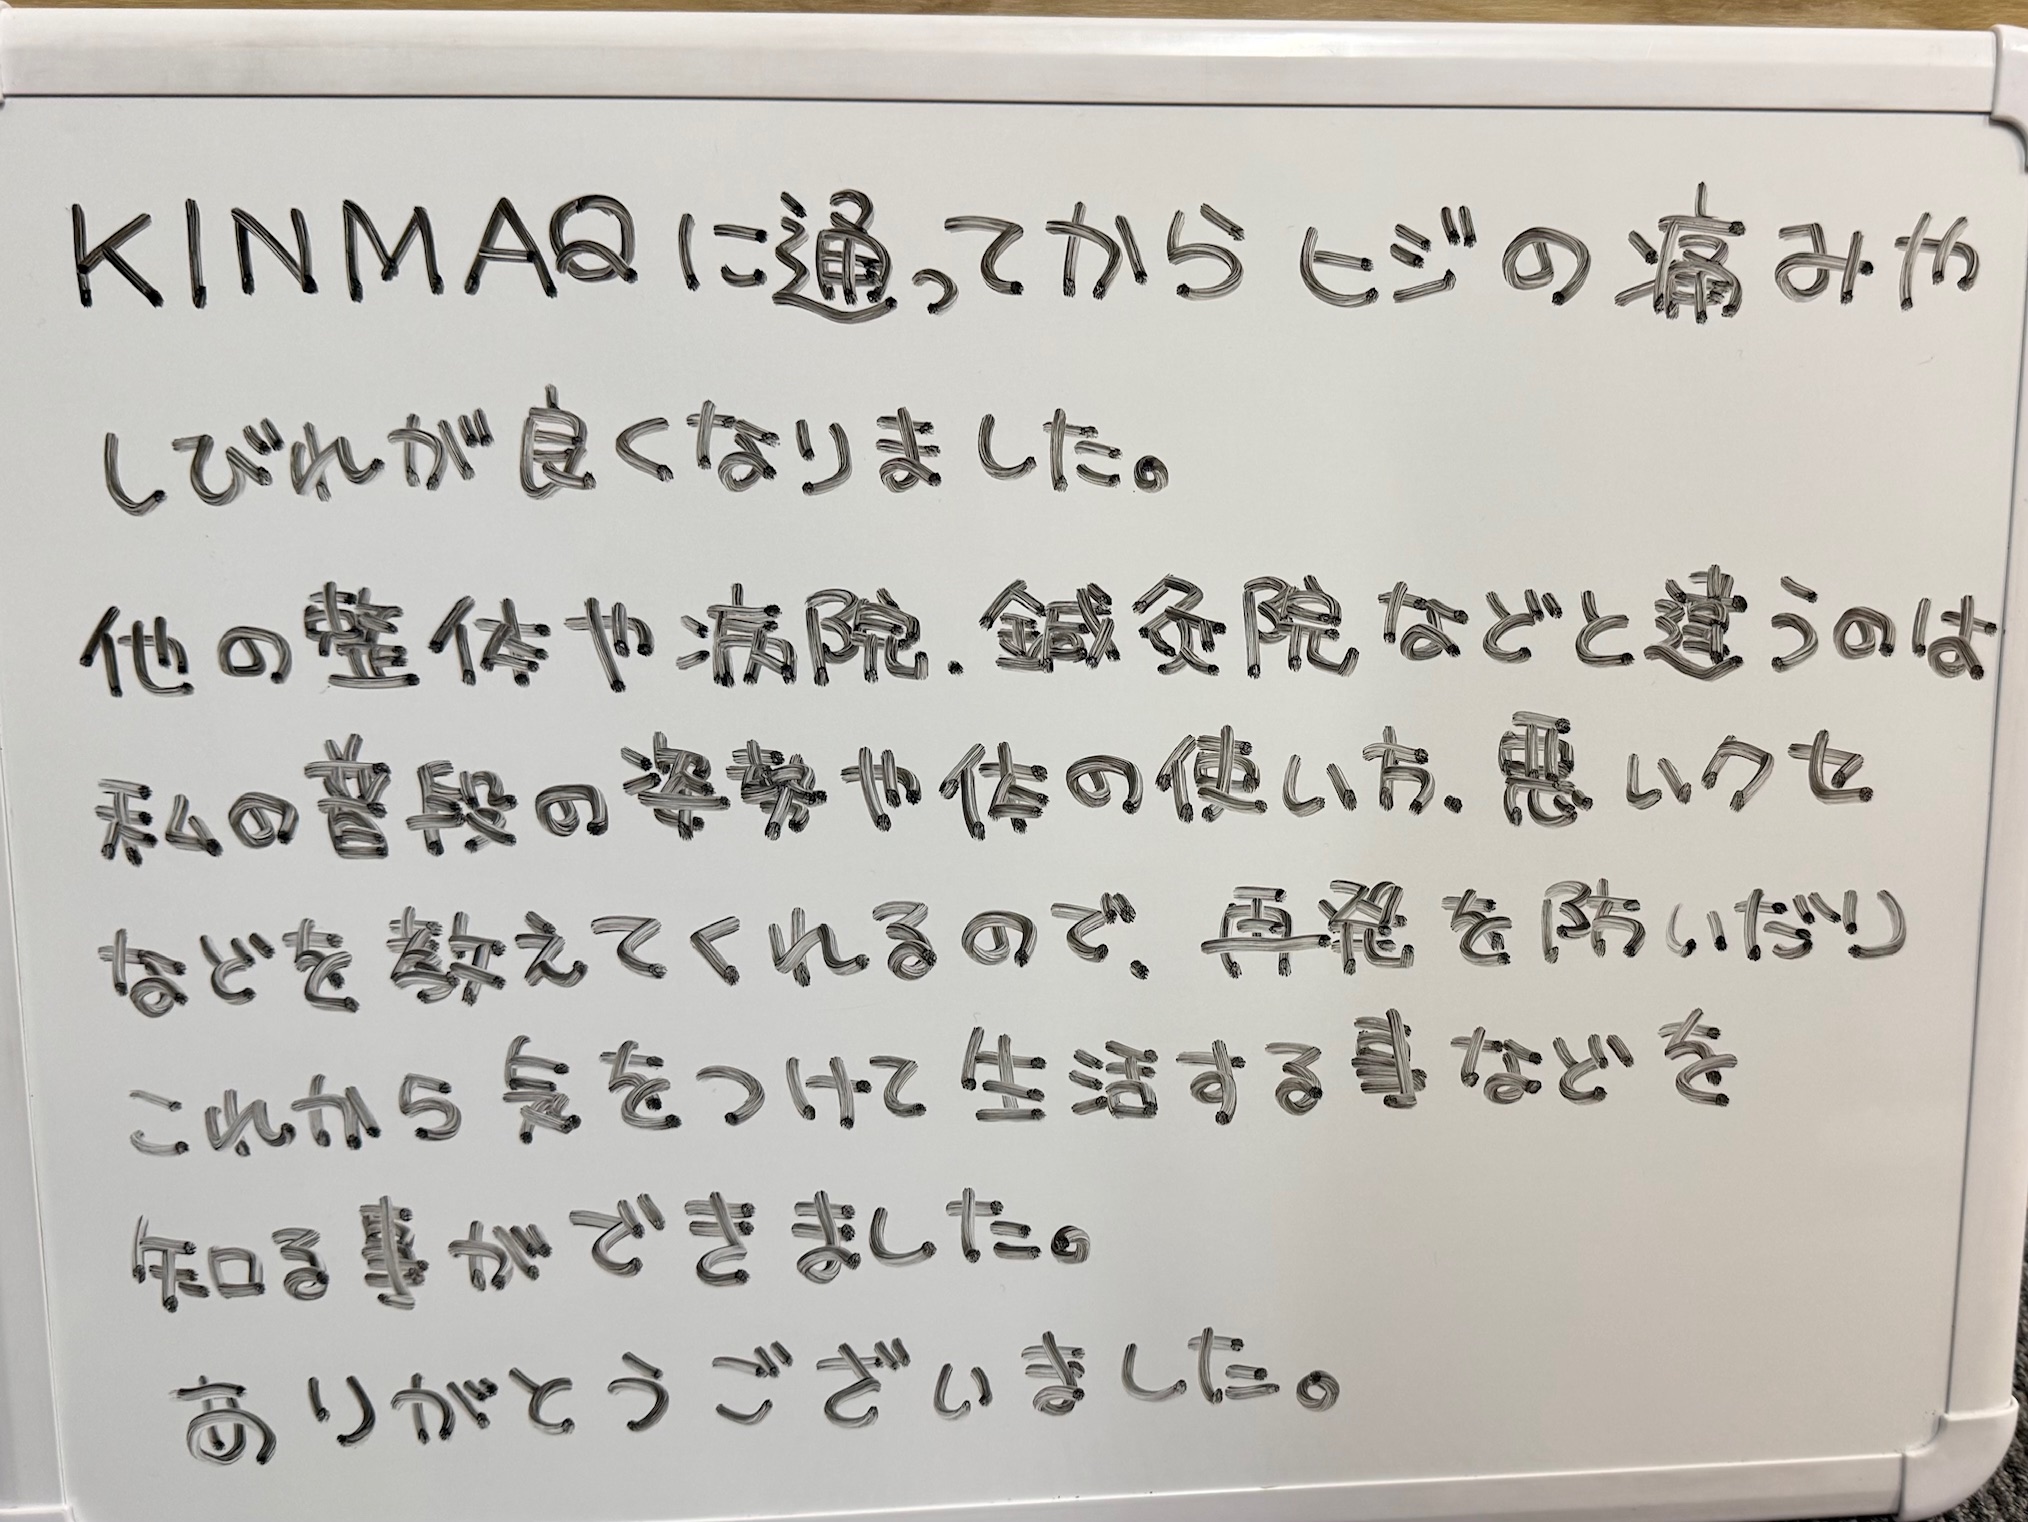 KINMAQに通ってからヒジの痛みや
しびれが良くなりました。
他の整体や病院、鍼灸院などと違うのは
私の普段の姿勢や体の使い方、悪いクセ
などを教えてくれるので、再発を防いだり
これから気をつけて生活する事などを
知る事ができました。
ありがとうございました。